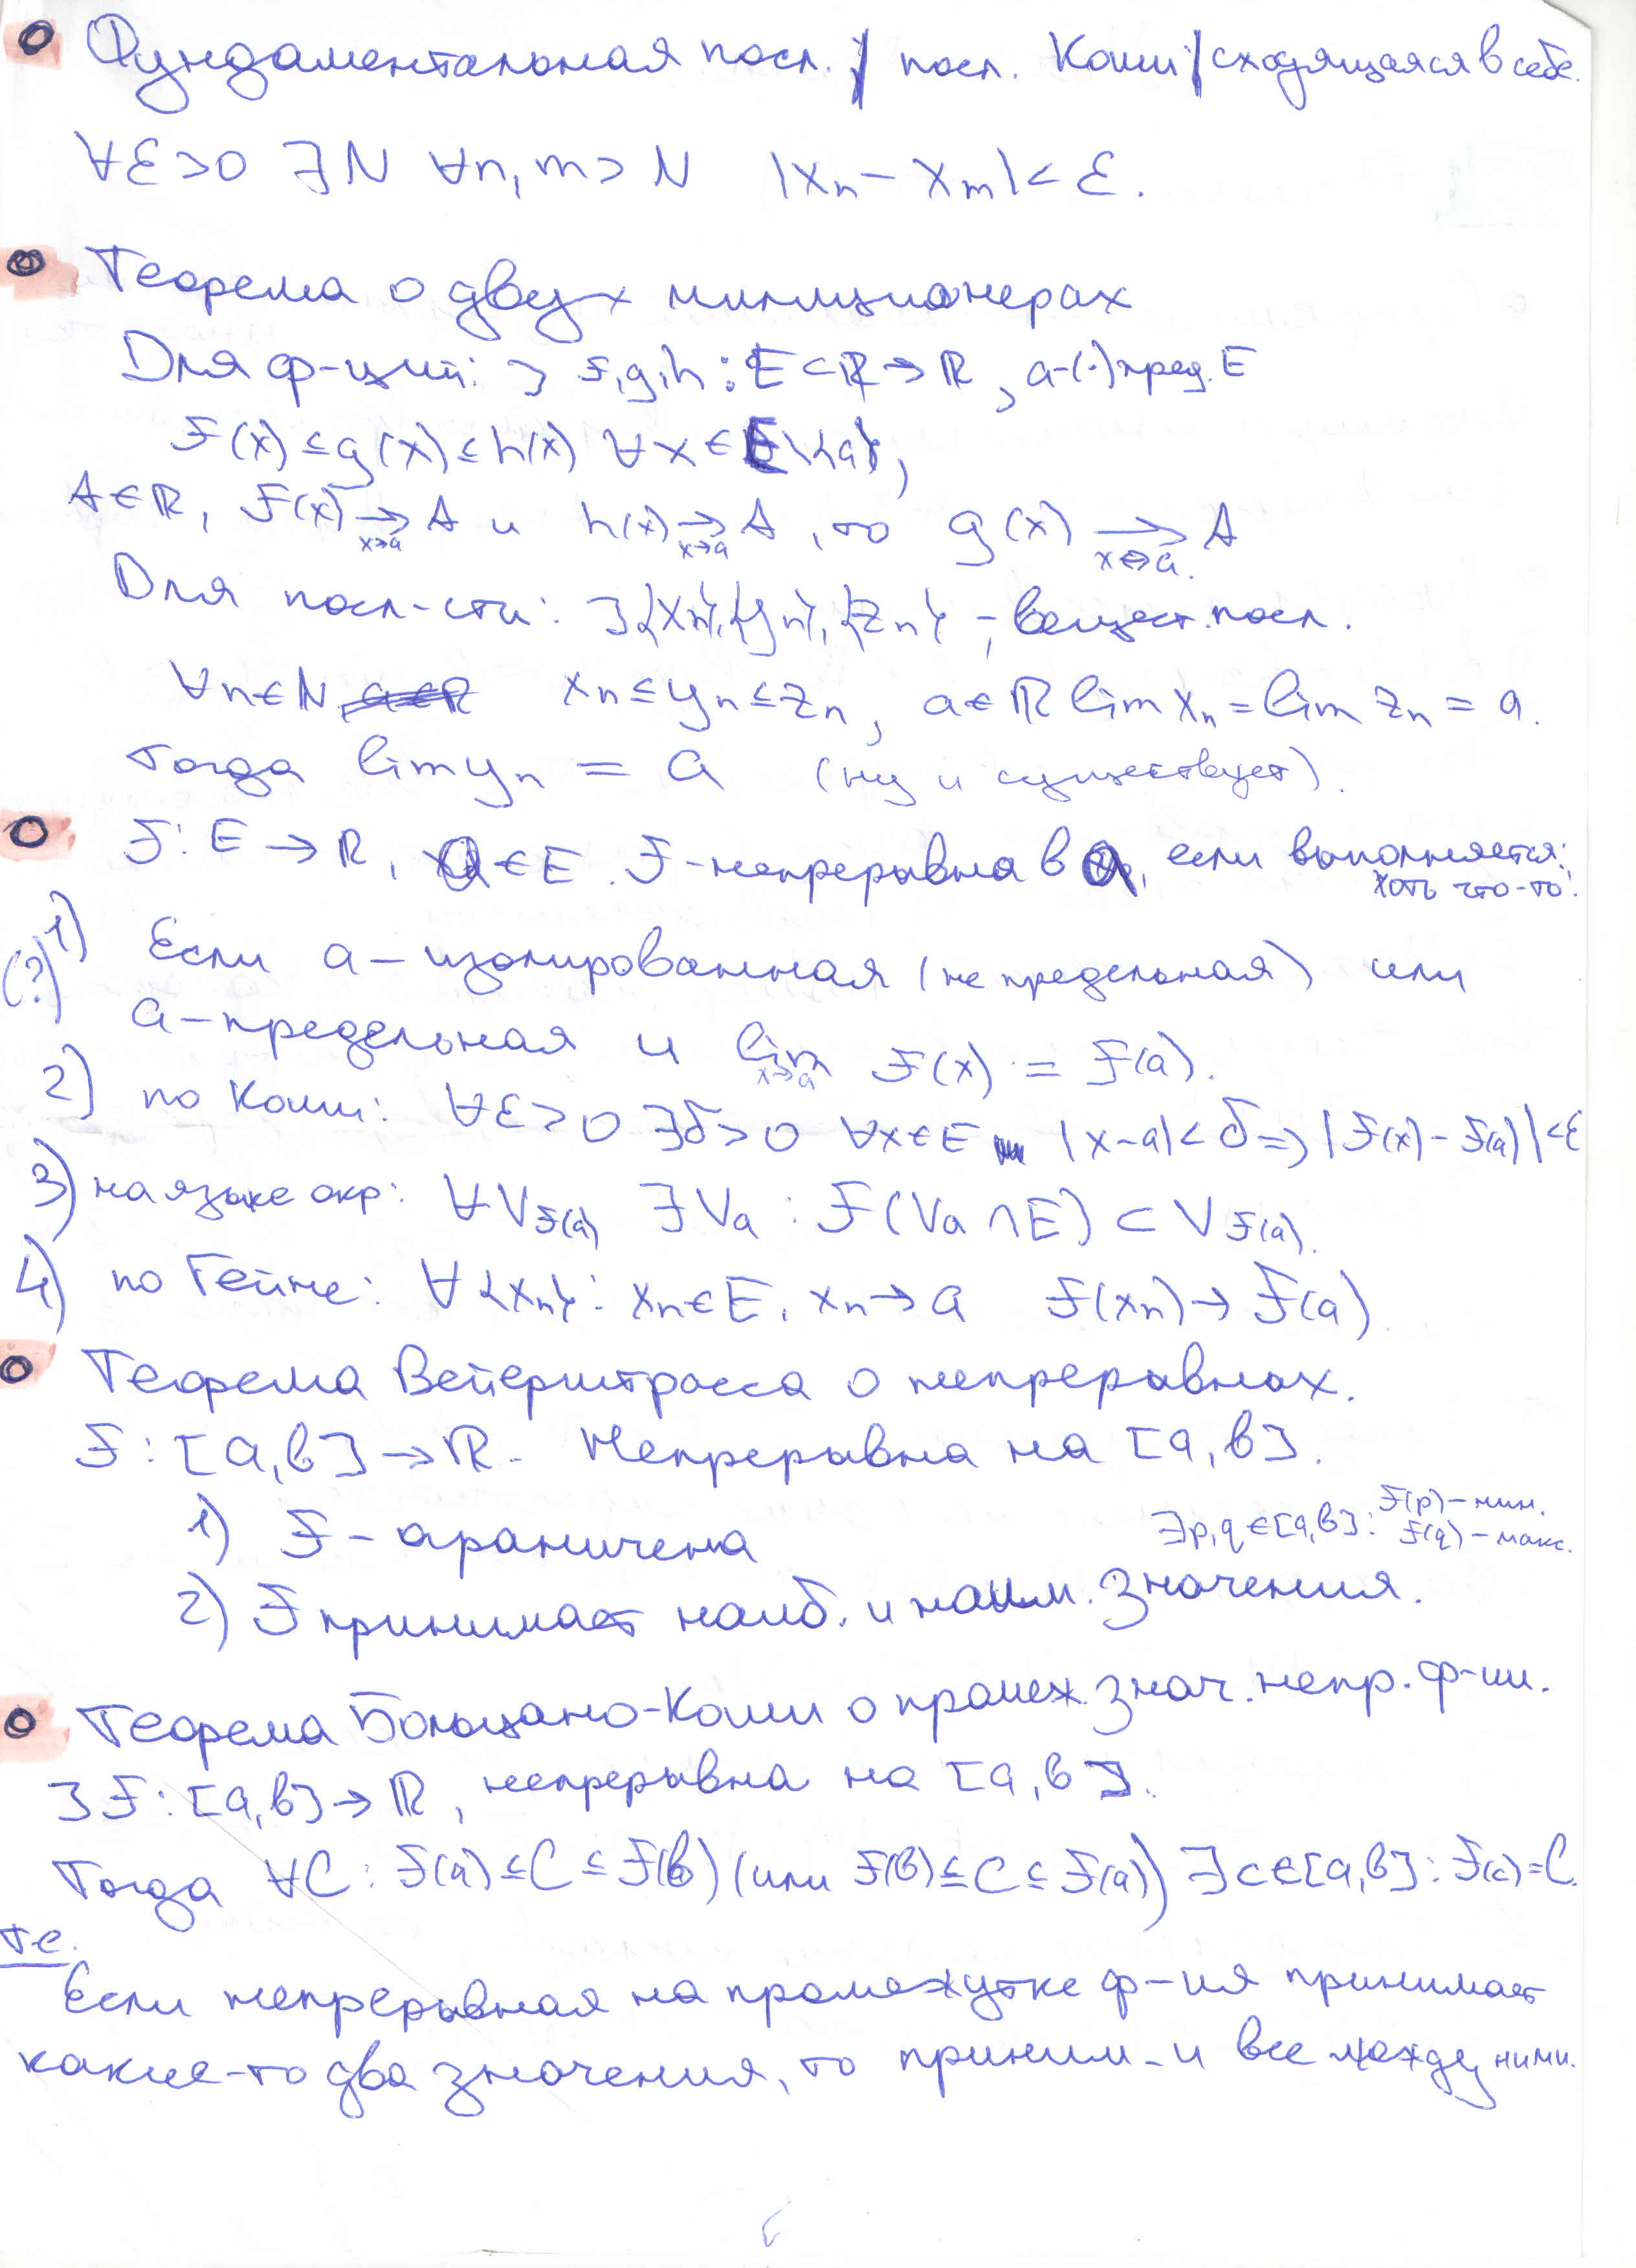 Фундаментальная посл. / посл. Коши / сходящаяся в себе.
∀ε>0 ∃N ∀n,m>N |xₙ - xₘ|<ε.
Теорема о двух миллиционерах
Для ф-ций: ∃ f,g,h : E⊂ℝ→ℝ, a-(·)пред. E
f(x)≤g(x)≤h(x) ∀x∈E\{a},
A∈ℝ, f(x) →(x→a) A и h(x) →(x→a) A, то g(x) →(x→a) A
Для посл-сти: ∃{xₙ},{yₙ},{zₙ} - вещест. посл.
∀n∈N xₙ≤yₙ≤zₙ, a∈ℝ lim xₙ = lim zₙ = a.
Тогда lim yₙ = a (ну и существует).
f: E→ℝ, a∈E. f-непрерывна в a, если выполняется:
хоть что-то:
(?) 1) Если a-изолированная (не предельная) или
a-предельная и lim(x→a) f(x) = f(a).
2) по Коши: ∀ε>0 ∃δ>0 ∀x∈E |x-a|<δ ⇒ |f(x)-f(a)|<ε
3) на языке окр: ∀V_f(a) ∃Vₐ : f(Vₐ∩E) ⊂ V_f(a).
4) по Гейне: ∀{xₙ}: xₙ∈E, xₙ→a f(xₙ)→f(a)
Теорема Вейерштрасса о непрерывных.
f: [a,b]→ℝ. Непрерывна на [a,b].
1) f - ограничена
∃p,q∈[a,b]: f(p)-мин. f(q)-макс.
2) f принимает наиб. и наим. значения.
Теорема Больцано-Коши о промеж. знач. непр. ф-ии.
∃ f: [a,b]→ℝ, непрерывна на [a,b].
Тогда ∀C: f(a)≤C≤f(b) (или f(b)≤C≤f(a)) ∃c∈[a,b]: f(c)=C.
т.е.
Если непрерывная на промежутке ф-ия принимает
какие-то два значения, то приним-и все между ними.